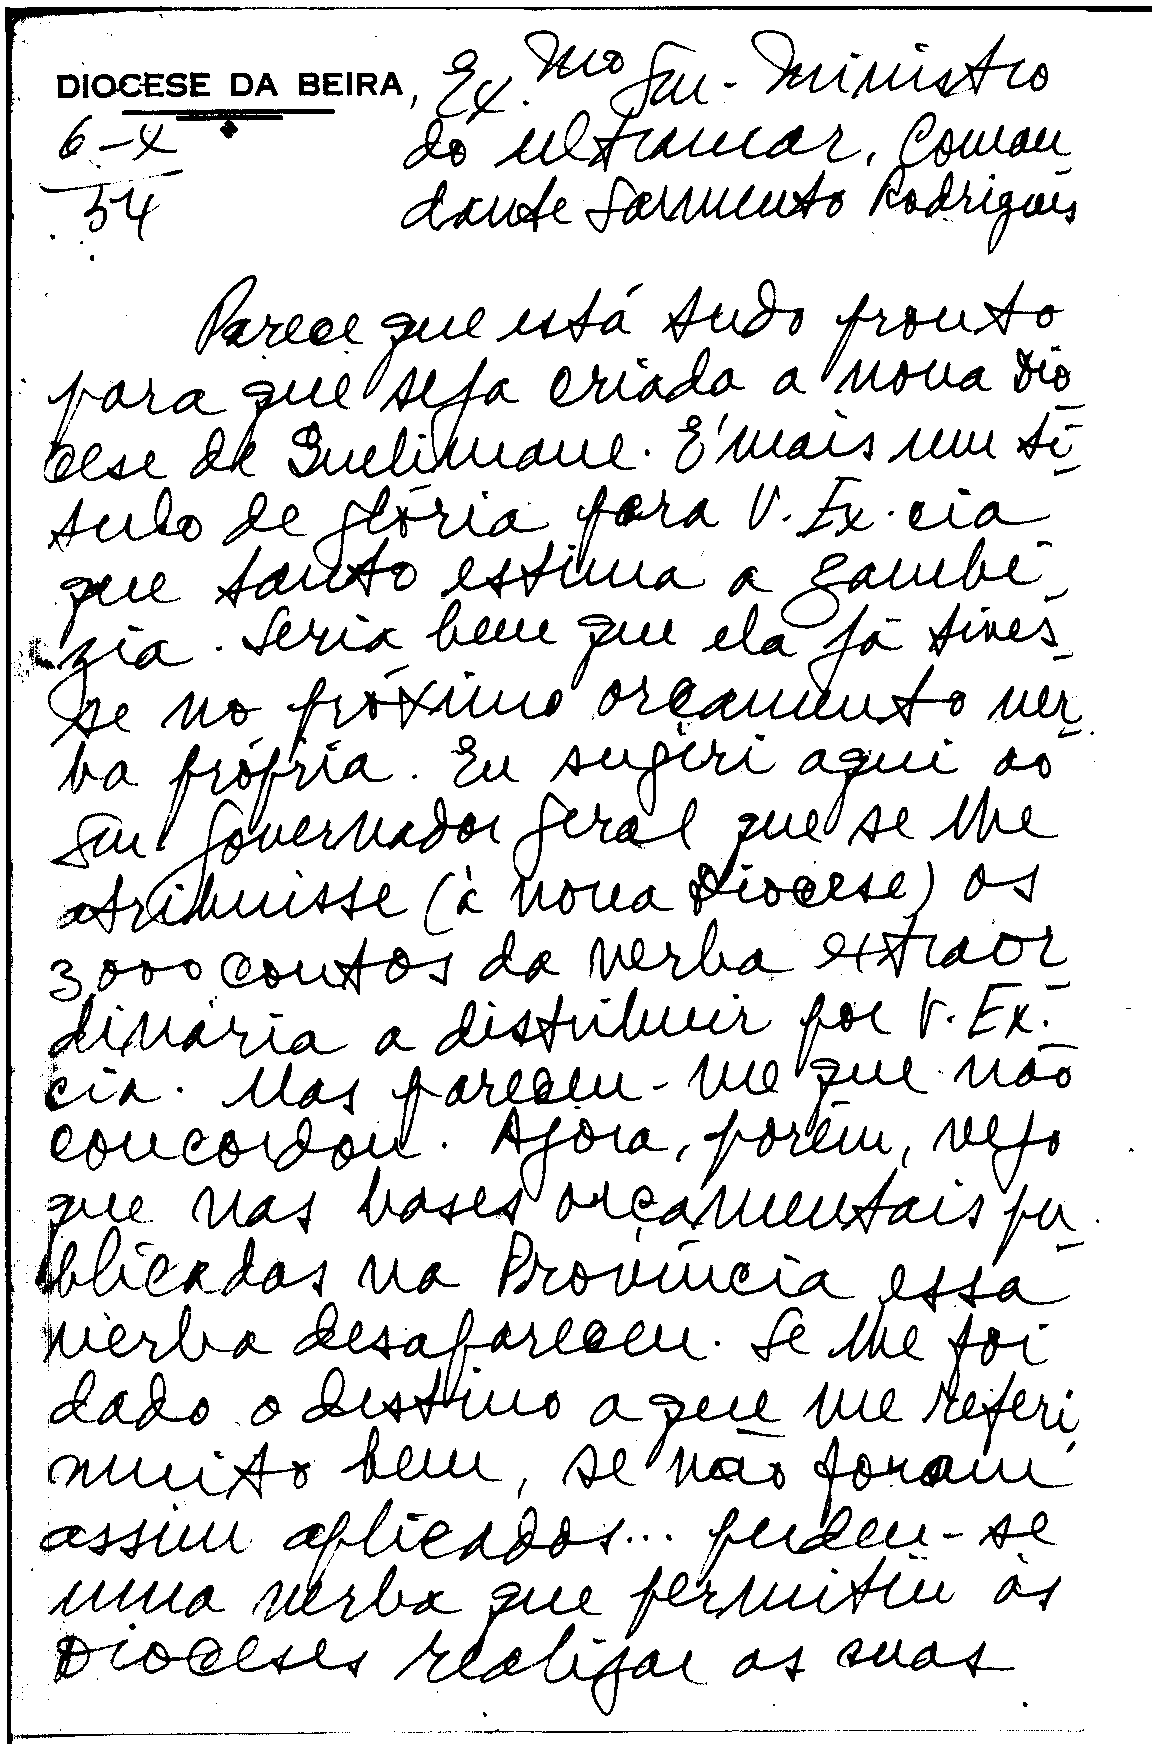 DIOCESE DA BEIRA, Ex.mo Snr. Ministro
6-X
54
do Ultramar, Coman
dante Sarmento Rodrigues
Parece que está tudo pronto
para que seja criada a nova Dio
cese de Quelimane. É mais um tí
tulo de glória para V. Ex.cia
que tanto estima a Zambé
zia. Seria bem que ela já tives
se no próximo orçamento ver
ba própria. Eu sugeri aqui ao
Snr Governador Geral que se lhe
atribuisse (à nova Diocese) os
3.000 contos da verba extraor
dinária a distribuir por V. Ex.
cia. Mas pareceu-me que não
concordou. Agora, porém, vejo
que nas bases orçamentais pu
blicadas na Província essa
verba desapareceu. Se lhe foi
dado o destino a que me referi,
muito bem, se não foram
assim aplicados... perdeu-se
uma verba que permitiu às
Dioceses realizar as suas